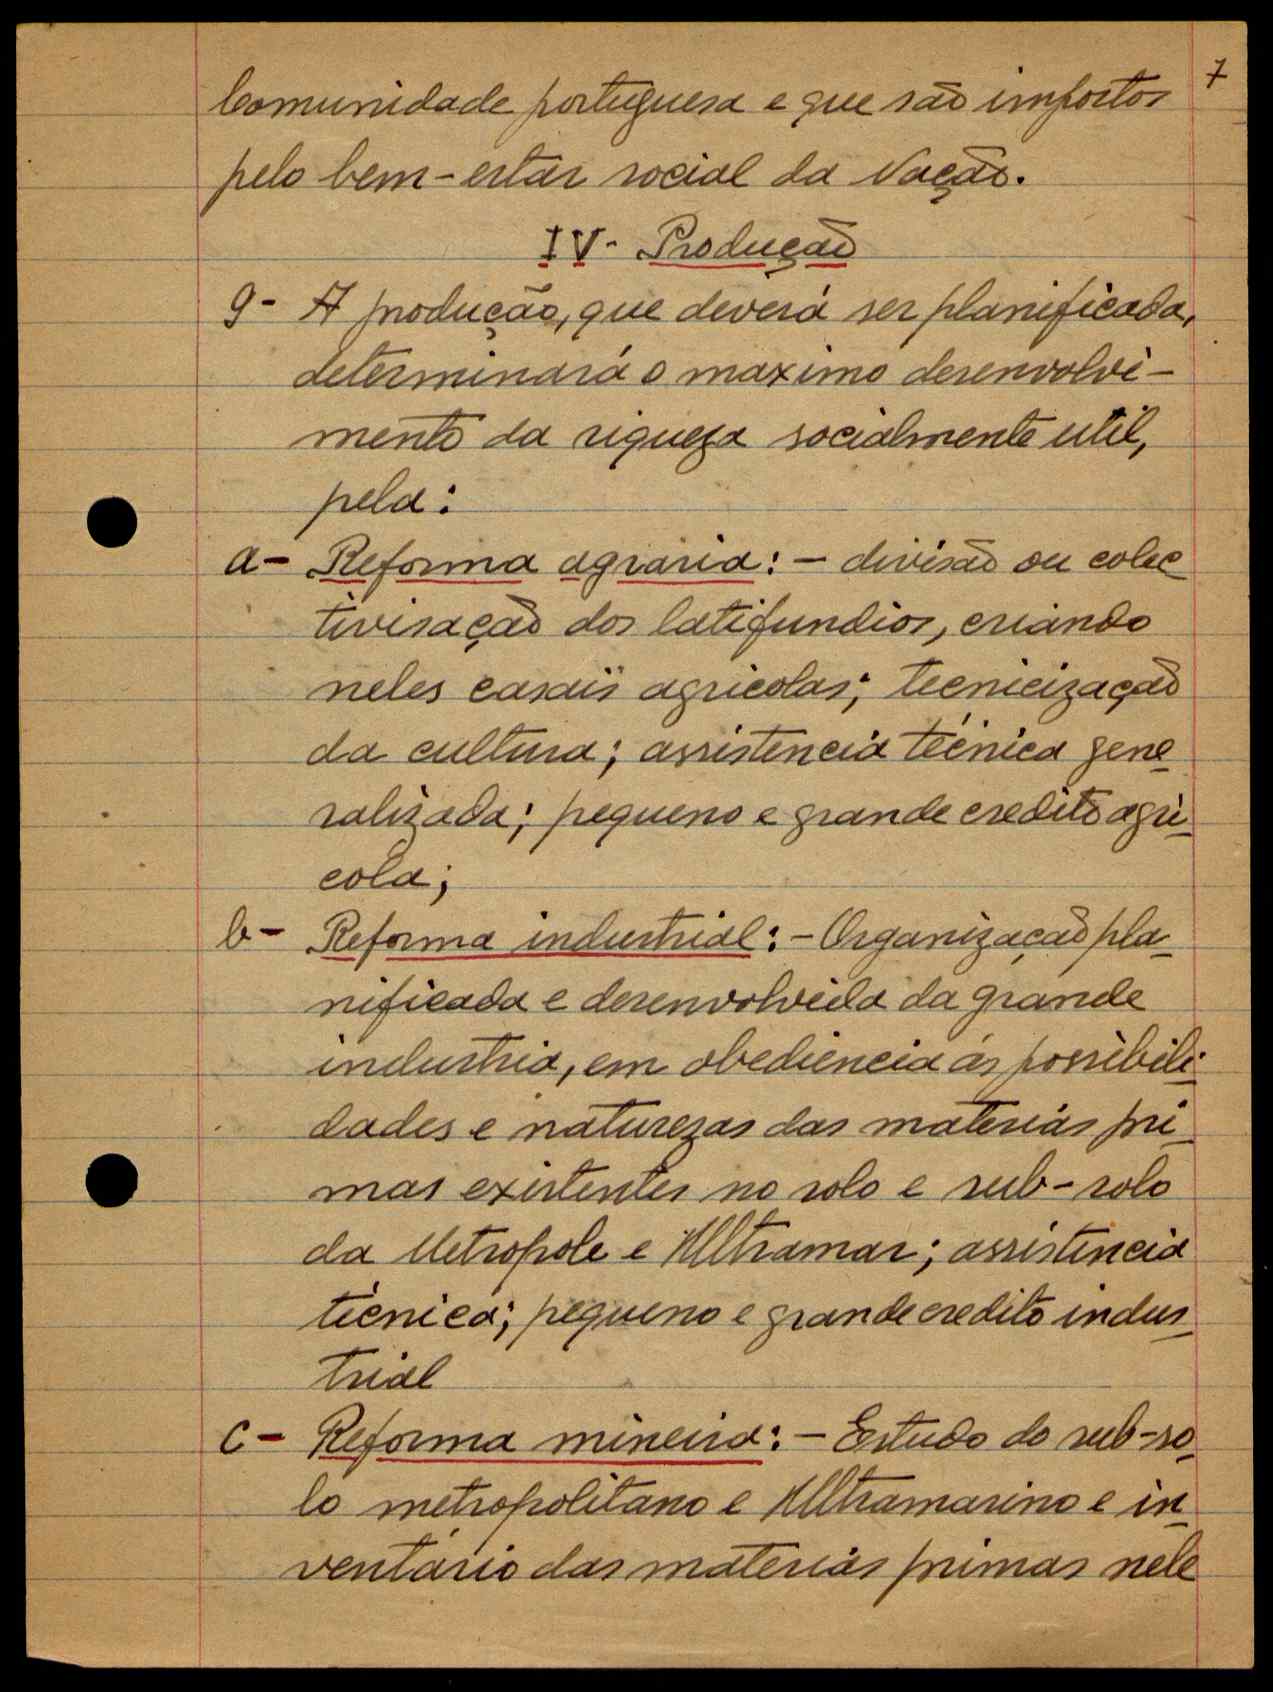 7
Comunidade portuguesa e que são impostos
pelo bem-estar social da Nação.
IV - Produção
9- A produção, que deverá ser planificada,
determinará o maximo desenvolvi-
mento da riqueza socialmente util,
pela:
a- Reforma agraria: - divisão ou colec
tivisação dos latifundios, criando
neles casais agricolas; tecnicização
da cultura; assistencia técnica gene
ralizada; pequeno e grande credito agri
cola;
b- Reforma industrial: - Organização pla
nificada e desenvolvida da grande
industria, em obediencia ás possibili
dades e naturezas das materias pri
mas existentes no solo e sub-solo
da Metropole e Ultramar; assistencia
técnica; pequeno e grande credito indus
trial
c- Reforma mineira: - Estudo do sub-so
lo metropolitano e Ultramarino e in
ventário das materias primas nele